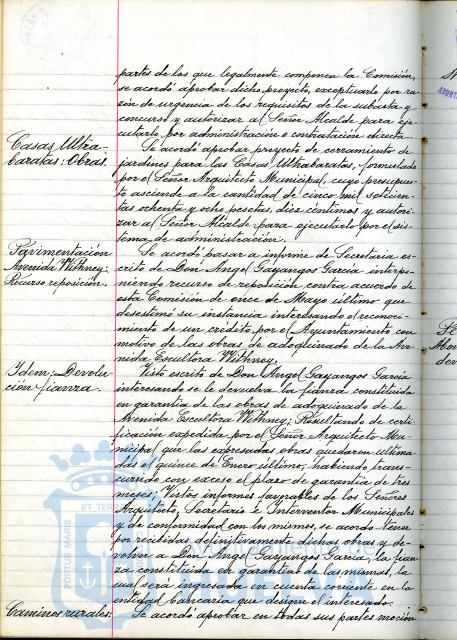 partes de los que legalmente componen la Comisión,
se acordó aprobar dicho proyecto, exceptuarlo por ra-
zón de urgencia de los requisitos de la subasta y
concurso y autorizar al Señor Alcalde para eje-
cutarlo por administración o contratación directa.
Casas Ultra-
baratas: Obras.
Se acordó aprobar proyecto de cerramiento de
jardines para las Casas Ultrabaratas, formulado
por el Señor Arquitecto Municipal, cuyo presupues-
to asciende a la cantidad de cinco mil setecien-
tas ochenta y ocho pesetas, diez céntimos y autori-
zar al Señor Alcalde para ejecutarlo por el sis-
tema de administración.
Pavimentación
Avenida Withney:
Recurso reposición.
Se acordó pasar a informe de Secretaría es-
crito de Don Angel Gayangos García interpo-
niendo recurso de reposición contra acuerdo de
esta Comisión de once de Mayo último que
desestimó su instancia interesando el reconoci-
miento de un crédito por el Ayuntamiento con
motivo de las obras de adoquinado de la Ave-
nida Escultora Withney.
Idem: Devolu-
ción fianza.
Visto escrito de Don Angel Gayangos García
interesando se le devuelva la fianza constituida
en garantía de las obras de adoquinado de la
Avenida Escultora Withney; Resultando de certi-
ficación expedida por el Señor Arquitecto Mu-
nicipal que las expresadas obras quedaron ultima-
das el quince de Enero último, habiendo trans-
currido con exceso el plazo de garantía de tres
meses; Vistos informes favorables de los Señores
Arquitecto, Secretario e Interventor Municipales
y de conformidad con los mismos, se acordó tener
por recibidas definitivamente dichas obras y de-
volver a Don Angel Gayangos García, la fian-
za constituida en garantía de las mismas, la
cual será ingresada en cuenta corriente en la
entidad bancaria que designe el interesado.
Caminos rurales:
Se acordó aprobar en todas sus partes moción
PORTUS MARIS
ET TERR